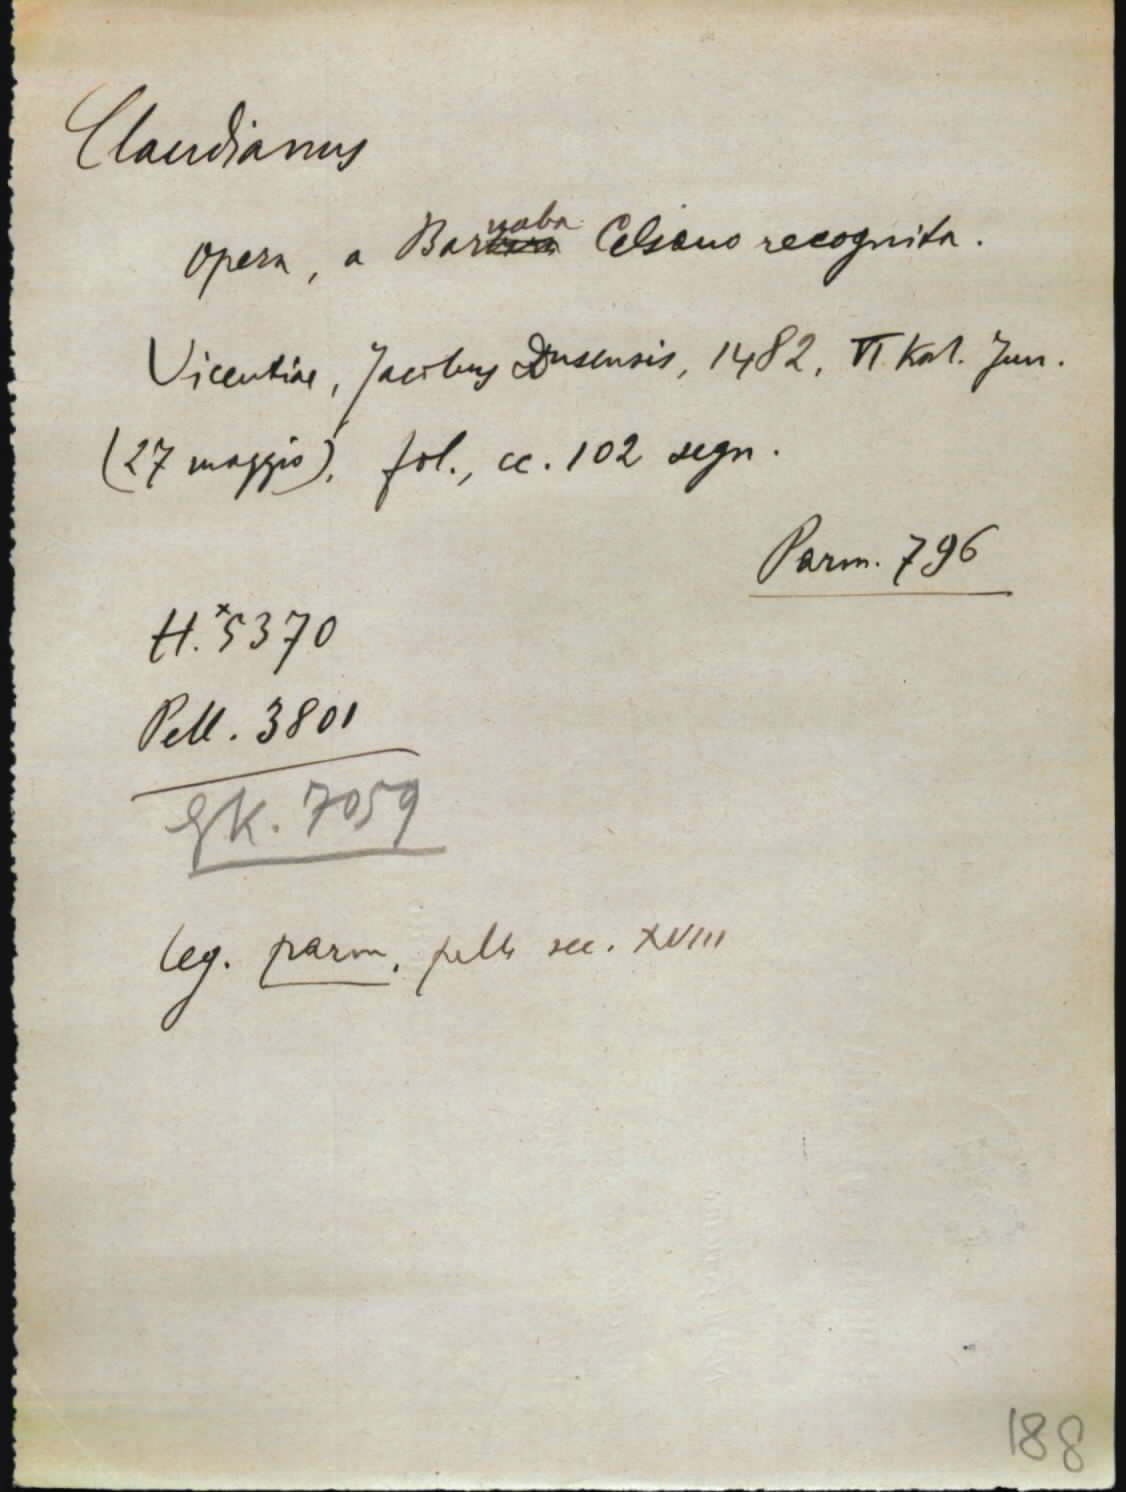 Claudianus
Opera, a Barnaba Celsano recognita.
Vicentiae, Jacobus Dusensis, 1482, VI. Kal. Jun.
(27 maggio), fol., cc. 102 segn.
Parm. 796
H.*5370
Pell. 3801
GK. 7059
leg. parm. pelle sec. XVIII
188